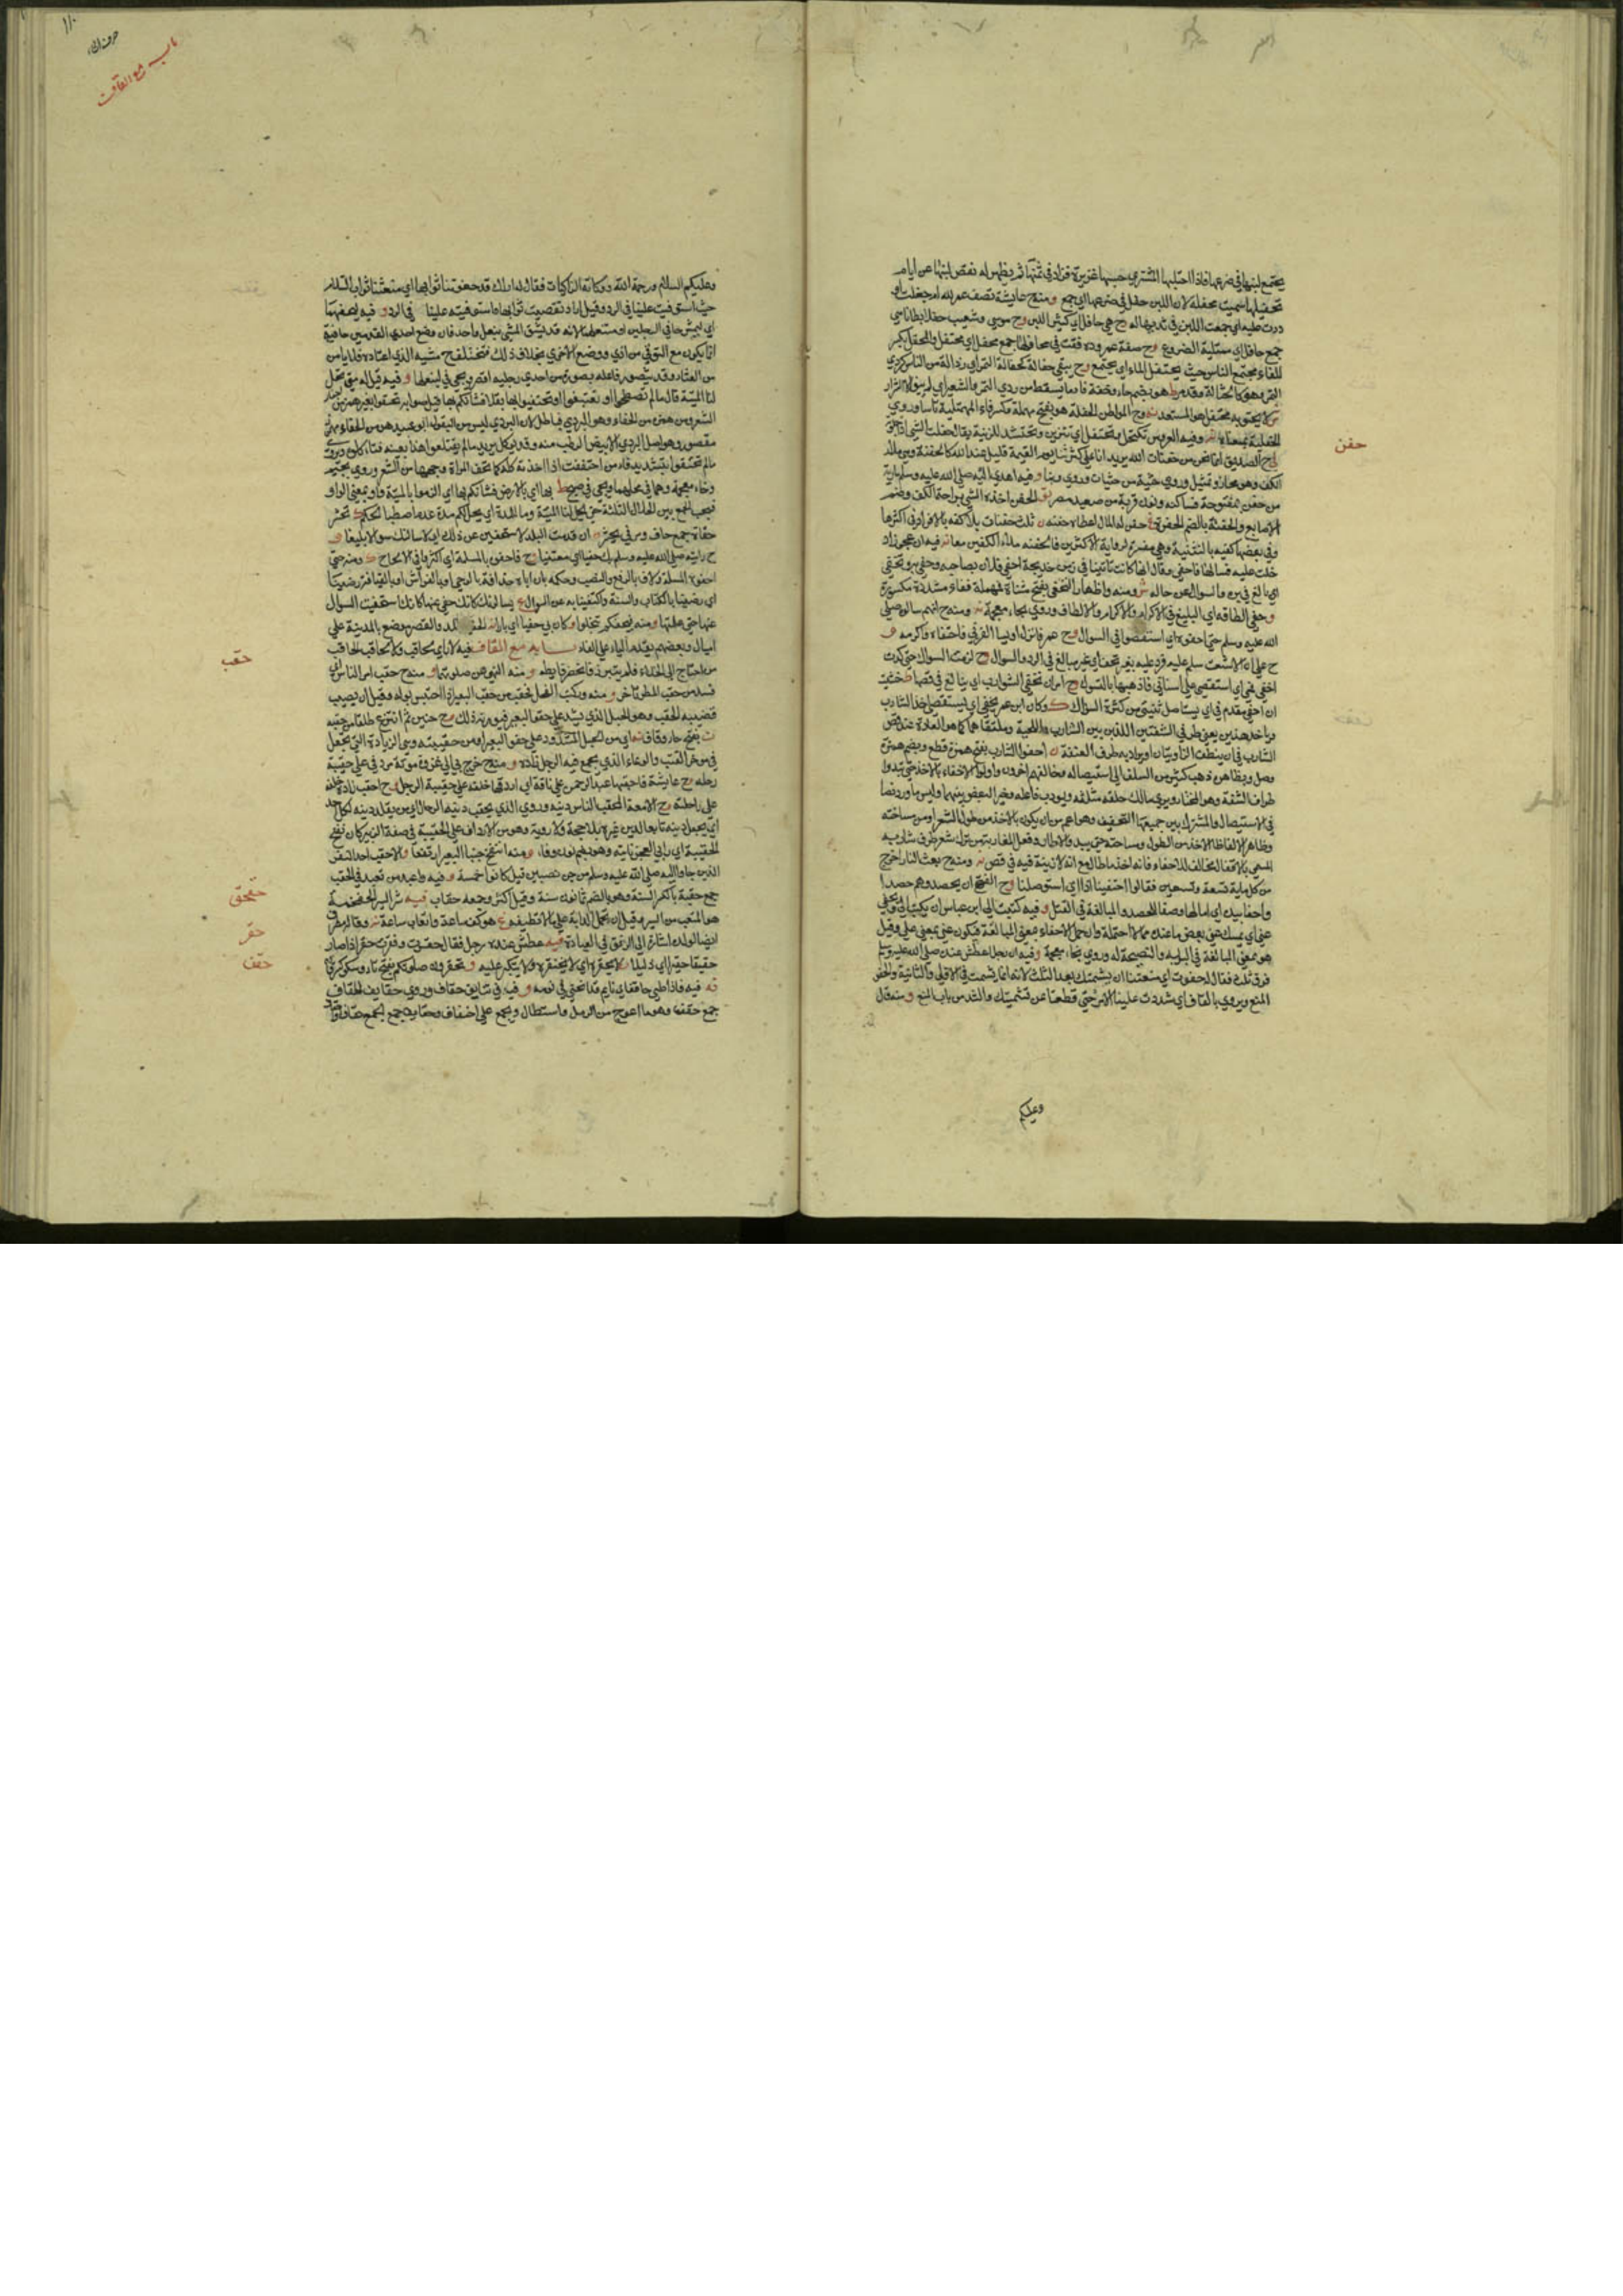 يجتمع لبنها في ضرعها فاذا احتلبها المشتري حسبها غزيرة فزاد في ثمنها ثم يظهر له نقص لبنها عن ايام
تحفيلها سميت محفلة لان اللبن حفل في ضرعها اي جمع ومنه ح عايشة تصف عمر لله ام حفلت له و
درت عليه اي جمعت اللبن في ثديها له ح هي حافل اي كثير اللبن وح موسى وشعيب حفلا بطانا هي
جمع حافل اي ممتلية الضروع وح صفة عمر ودفقت في محافلها جمع محفل اي محتفل والمحفل بكسر
الفاء مجتمع الناس حيث يحتفل الماء اي يجتمع وح يبقى حفالة كحفالة التمر اي رذالة من الناس كردي
التمر وهو كالحثالة وقد مر ط هو بضم حاء وخفة فا ما يسقط من ردي التمر والشعير اي لم يبق الا شرار
العروس تكتحل وتحتفل اي تتزين وتحتشد للزينة يقال حفلت الشي اذا جلوته
ح الصديق انما نحن حفنة من حفنات الله يريد انا على كثرتنا يوم القيمة قليل عند الله كالحفنة وهي ملء
الكف وهو مجاز وتمثيل وروي حثية من حثيات وروي ربنا وفيه اهدي اليه صلى الله عليه وسلم مارية
من حفن بمفتوحة فساكنة ونون قرية من صعيد مصر ق الحفن اخذك الشي براحتك والكف وضم
الاصابع والحفنة بالضم الحفرة حفن له المال اعطاه حفنة ن ثلث حفنات بلا كفه بالافراد في اكثرها
وفي بعضها كفيه بالتثنية وهي مفسرة لرواية الاكثرين فالحفنة ملء الكفين معا نه فيه ان عجوزا د
خلت عليه فسالها فاحفى وقال انها كانت تاتينا في زمن خديجة احفى فلان بصاحبه وحفي به وتحفى
اي بالغ في بره والسوال عن حاله ش ومنه واظهار التحفي بفتح مثناة فمهملة ففاء مشددة مكسورة
وحفي الطافه اي البليغ في الاكرام والاكرام والالطاف وروي بخاء معجمة نه ومنه ح انهم سالوه صلى
الله عليه وسلم حتى احفوه اي استقصوا في السوال وح عمر فانزل اويسا القرني فاحتفاه واكرمه و
ح علي ان الاشعث سلم عليه فرد عليه بغير تحف اي غير مبالغ في الرد والسوال وح لزمت السواك حتى كدت
احفي فمي اي استقصي على اسناني فاذهبها بالتسوك وح امر ان تحفى الشوارب اي يبالغ في قصها ط خشيت
ان احفي مقدم في اي يستاصل لثتي من كثرة السواك ك وكان ابن عمر يحفي اي يستقصي اخذ الشارب
وياخذ هذين يعني طرفي الشفتين اللذين بين الشارب واللحية وملتقاهما كما هو العادة عند قص
الشارب في ان ينظف الزاويتان او يراد به طرفا العنفقة ن احفوا الشارب بفتح همزة قطع وبضم همزة
وصل وبظاهره ذهب كثير من السلف الى استيصاله وخالفهم اخرون واولوا الاحفاء بالاخذ حتى تبدوا
اطراف الشفة وهو المختار ويرى مالك حلقه مثلة ويودب فاعله وخير البعض بينهما وليس ما ورد نصا
في الاستيصال والمشترك بين جميعها التخفيف وهو اعم من ان يكون بالاخذ من طول الشعر او من مساحته
وظاهر الالفاظ الاخذ من الطول ومساحته حتى يبدو الاطار وفعل المغاربة من ترك شعر طرف شاربه
من كل ماية تسعة وتسعين فقالوا احتفينا اذا اي استوصلنا وح الفتح ان يحصدوهم حصدا
واحفا بيده اي امالها وصفا للحصد والمبالغة في القتل وفيه كتبت الى ابن عباس ان يكتب الي ويحفي
عني اي يمسك عني بعض ما عنده مما لا احتمله وان حمل الاحفاء بمعنى المبالغة فيكون عني بمعنى علي وقيل
هو بمعنى المبالغة في البر به والنصيحة له وروي بخاء معجمة وفيه ان رجلا عطس عنده صلى الله عليه وسلم
فوق ثلث فقال له حفوت اي منعتنا ان نشمتك بعد الثلث لانه انما يشمت في الاولى والثانية والحفو
المنع ويروى بالقاف اي شددت علينا الامر حتى قطعتنا عن تشميتك والشد من باب المنع ومنه قال
وعليكم
حفن
١١٠
حرف الحاء
باب مع القاف
وعليكم السلام ورحمة الله وبركاته الزاكيات فقال له اراك قد حفوتنا ثوابها اي منعتنا ثواب السلام
حيث استوفيت علينا في الرد وقيل اراد تقصيت ثوابها واستوفيته علينا في الرد و فيه ليحفهما
اي ليمش حافي الرجلين او منتعلهما لانه قد يشق المشي بنعل واحد فان وضع احدى القدمين حافية
انما يكون مع التوقي من اذى ووضع الاخرى بخلاف ذلك فتختلف ح مشيه الذي اعتاده فلا يامن
من العثار وقد يتصور فاعله بصورة من احدى رجليه اقصر ويجي في لينعلهما و فيه قيل له متى تحل
لنا الميتة قال ما لم تصطبحوا او تغتبقوا او تحتفيوا بها بقلا فشانكم بها قيل صوابه تحتفوا بغير همز من احفا
الشعر ومن همز من الحفاء وهو البردي فباطل لان البردي ليس من البقول ابو عبيد هو من الحفاء مهموز
مقصور وهو اصل البردي الابيض الرطب منه وقد يوكل يريد ما لم يقتلعوا هذا بعينه فتاكلوه ويروى
ما لم تحتفوا بتشديد فاء من احتففت الشي اذا اخذته كله كما تحف المراة وجهها من الشعر وروي بجيم
وخاء معجمة وهما في محلهما ويجي في صبح ط بها اي بالارض فشانكم بها اي الزموا بالميتة واو بمعنى الواو
فيجب الجمع بين الخلال الثلثة حتى تحل لنا الميتة وما للمدة اي يحل لكم مدة عدم اصطباحكم ك تحشر
حفاة جمع حاف ومر في يحشر ان قدمت البلد لاستحفين عن ذلك اي لاسالنك سوالا بليغا و
ح رايته صلى الله عليه وسلم بك حفيا اي معتنيا ح فاحفوه بالمسلة اي اكثروا في الالحاح ك ومنه حتى
اي رضينا بالكتاب والسنة واكتفينا به عن السوال ع يسالونك كانك حفي عنها كانك استحفيت السوال
عنها حتى علمتها ومنه فيحفكم تبخلوا وكان بي حفيا اي بارا نه الحفيا بالمد والقصر موضع بالمدينة على
اميال وبعضهم يقدم الياء على الفاء باب مع القاف فيه لا راي لحاقب ولا لحاقن الحاقب
من احتاج الى الخلاء فلم يتبرز فانحصر غايطه ومنه النهي عن صلوته ومنه ح حقب امر الناس اي
فسد من حقب المطر تاخر ومنه وركبت الفحل فحقب من حقب البعير اذا احتبس بوله وقيل ان يصيب
قضيبه الحقب وهو الحبل الذي يشد على حقو البعير فيورثه ذلك وح حنين ثم انتزع طلقا من حقبه
ن بفتح حاء وقاف نه اي من الحبل المشدود على حقو البعير او من حقيبته وهي الزيادة التي تجعل
في موخر القتب والوعاء الذي يجمع فيه الرجل زاده و منه ح خرج بي الى غزوة موتة مردفي على حقيبة
رحله وح عايشة فاحقبها عبد الرحمن على ناقة اي اردفها خلفه على حقيبة الرحل وح احقب زاده خلفه
على راحلته وح الامعة المحقب الناس دينه وروي الذي يحقب دينه الرجال اي من يقلد دينه لكل احد
اي يجعل دينه تابعا لدين غيره بلا حجة ولا روية وهو من الارداف على الحقيبة و في صفة الزبير كان نفج
الحقيبة اي رابي العجز ناتيه وهو بضم نون وفاء ومنه انتفج جنبا البعير ارتفعا والاحقب احد النفر
الذين جاوا اليه صلى الله عليه وسلم من جن نصيبين قيل كانوا خمسة و فيه واعبد من تعبد في الحقب
جمع حقبة بالكسر السنة وهو بالضم ثمانون سنة وقيل اكثر وجمعه حقاب فيه شر السير الحقحقة
هو المتعب من السير وقيل ان تحمل الدابة على ما لا تطيقه غ هو كف ساعة واتعاب ساعة نه وقاله مطرف
ايضا لولده اشارة الى الرفق في العبادة فيه عطس عنده رجل فقال حقرت ونقرت حقر اذا صار
حقيرا حقرا اي ذليلا ن لا يحقره اي لا يحتقره ولا يتكبر عليه و تحقرون صلوتكم بفتح تاء وسكون
نه فيه فاذا ظبي حاقف اي نايم قد انحنى في نومه و فيه في تنايف حقاف وروي حقايف الحقاف
جمع حقف وهو ما اعوج من الرمل واستطال ويجمع على احقاف وحقايف جمع الجمع حقاف
حقب
حقحق
حقر
حقف